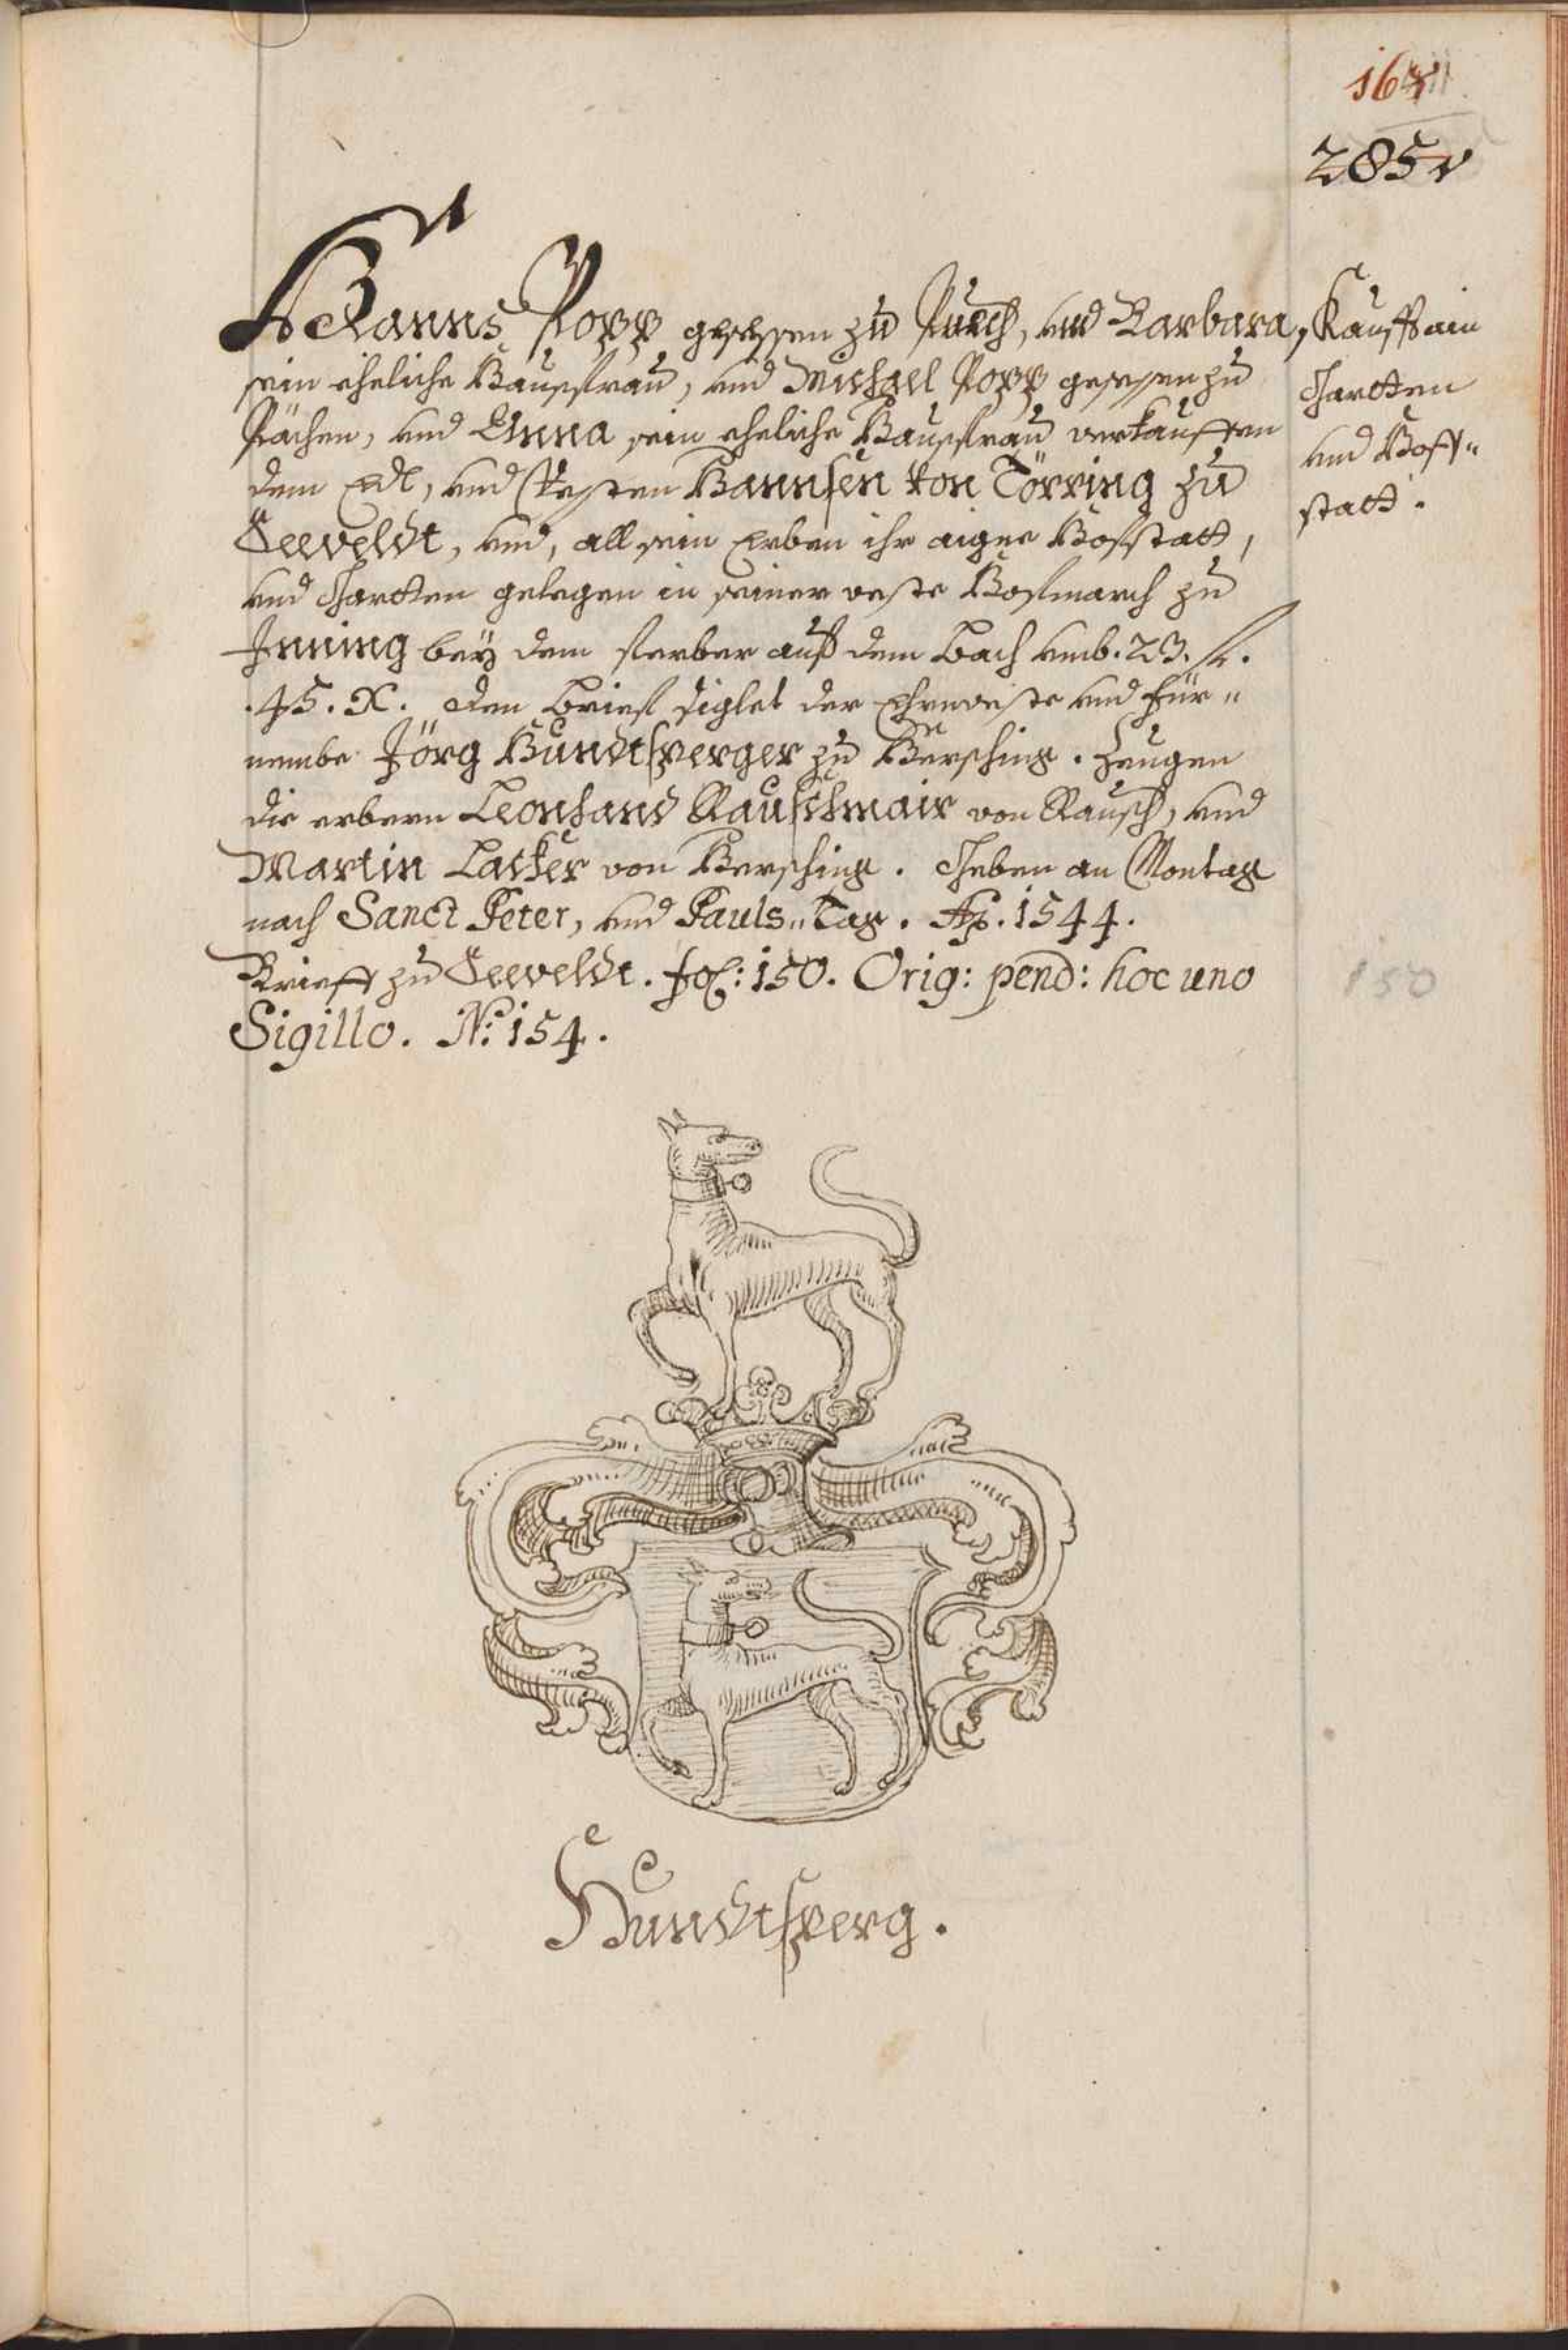 285v
Hanns Popp gesessen zu Puech, und Barbara,
sein eheliche Haussfrau, und Michael Popp gesessen zu
Pächen, und Anna sein eheliche Haussfrau verkaufften
dem Edl, und Vesten Hannsen von Törring zu
Seeveldt, und, all sein Erben ihr aigne Hofstatt,
und Gartten gelegen in seiner veste Hofmarch zu
Inning bey dem ferber auf dem Bach umb. 23. fl.
.45. X. Den Brief siglet der Ehrnveste und für„
nembe Jörg Hundtsperger zu Hersching. Zeugen
die erbern Leonhard Rauschmair von Rausch, und
Martin Lacker von Hersching. Geben an Montag
nach Sanct Peter, und Pauls„Tag. Ao. 1544.
Brieff zu Seeveldt. fol: 150. Orig: pend: hoc uno
Sigillo. No: 154.
Kauff ain
Gartten
und Hoff„
statt.
150
Hundtsperg.